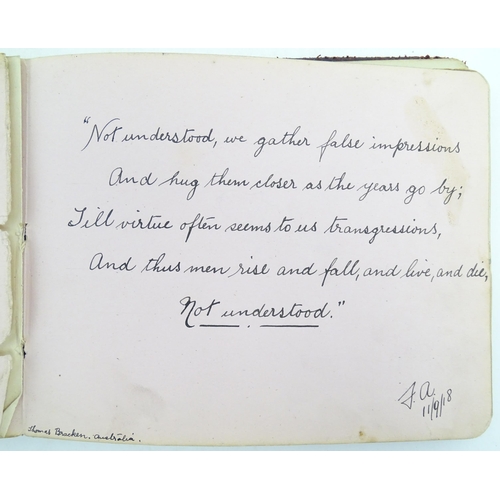 "Not understood, we gather false impressions
And hug them closer as the years go by;
Till virtue often seems to us transgressions,
And thus men rise and fall, and live, and die,
Not understood."
F.A.
11/9/18
Thomas Bracken, Australia.